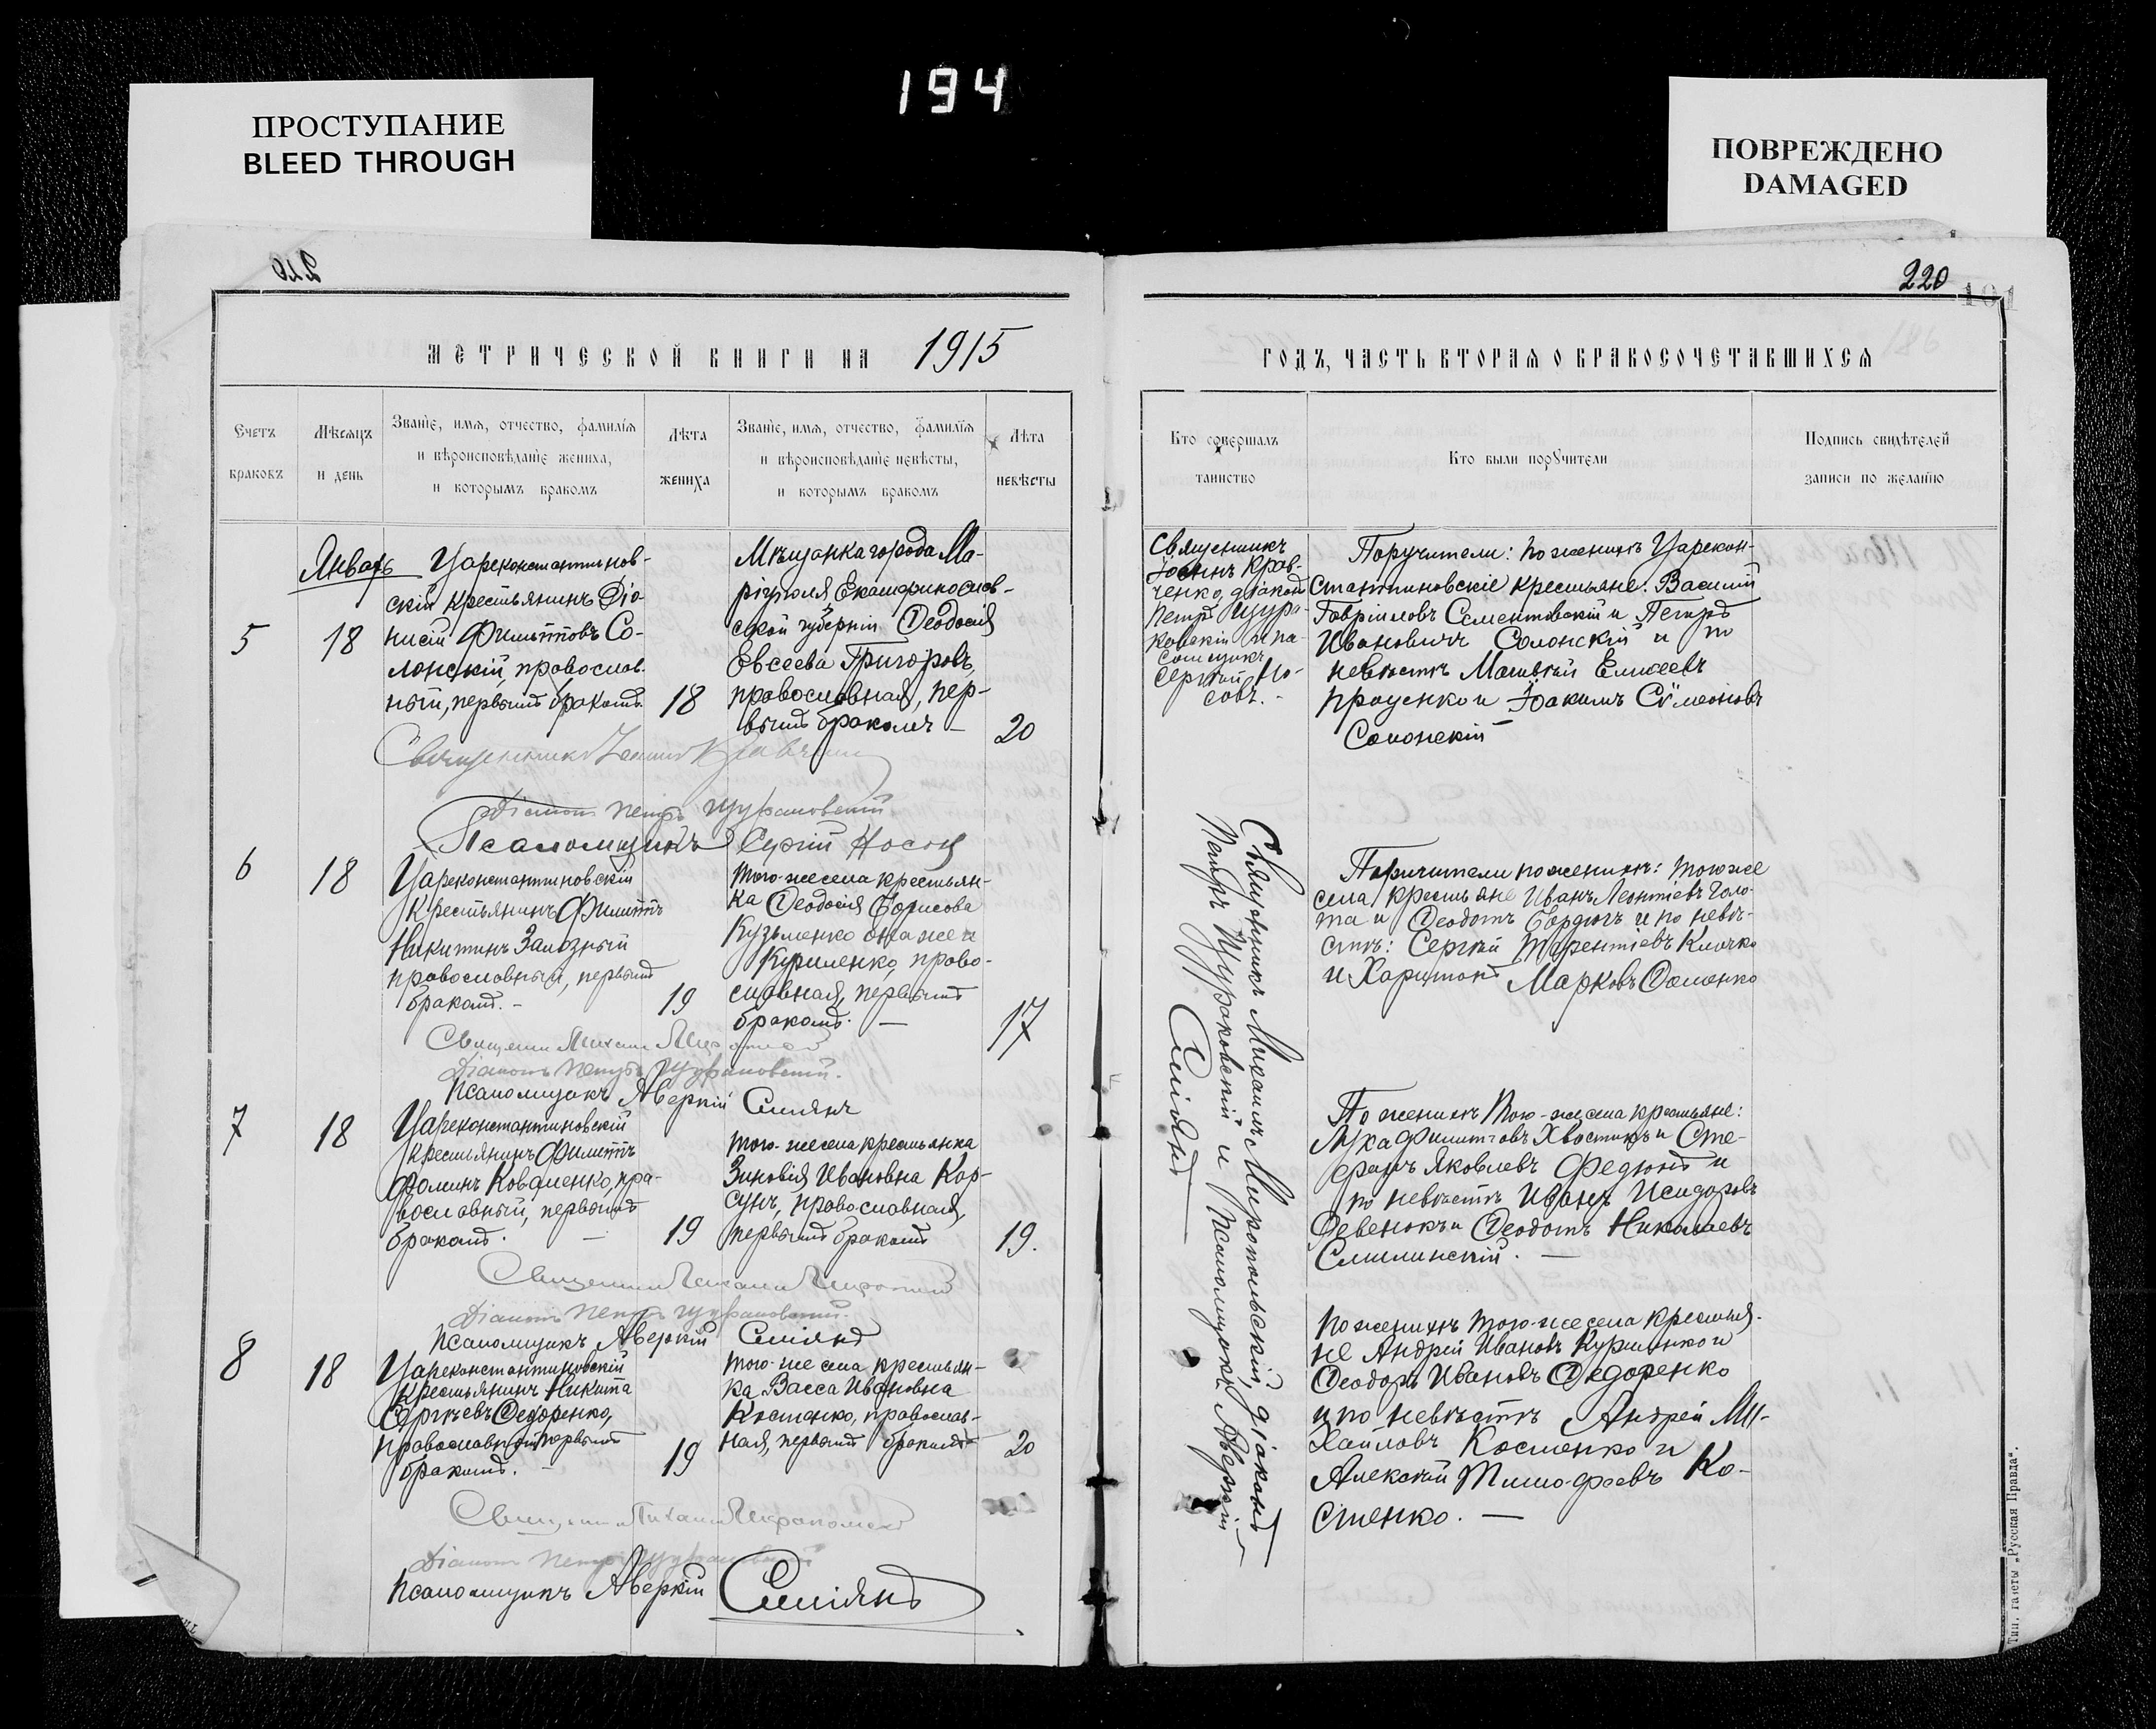 194
ПРОСТУПАНИЕ
BLEED THROUGH
ПОВРЕЖДЕНО
DAMAGED
220
МЕТРИЧЕСКОЙ КНИГИ НА 1915
ГОДЪ, ЧАСТЬ ВТОРАЯ О БРАКОСОЧЕТАВШИХСЯ
Счетъ
браковъ
Мѣсяцъ
и день
Званіе, имя, отчество, фамилія
и вѣроисповѣданіе жениха,
и которымъ бракомъ
Лѣта
жениха
Званіе, имя, отчество, фамилія
и вѣроисповѣданіе невѣсты,
и которымъ бракомъ
Лѣта
невѣсты
Кто совершалъ
таинство
Кто были порꙋчители
Подпись свидѣтелей
записи по желанію
Январь
5
18
Цареконстантинов-
скій крестьянинъ Діо-
нисій Филипповъ Со-
лонскій, православ-
ный, первымъ бракомъ.
18
Мѣщанка города Ма-
ріуполя Екатеринослав-
ской губерніи Ѳеодосія
Евсеева Григоровъ,
православная, пер-
вымъ бракомъ –
20
Священникъ
Іоаннъ Крав-
ченко, діаконъ
Петръ Щура-
ковскій и пса-
ломщикъ
Сергій Но-
совъ. –
Поручители: по женихѣ Царекон-
стантиновскіе крестьяне: Василій
Гавріиловъ Сементовскій и Петръ
Ивановичъ Солонскій и по
невѣстѣ Матвѣй Елисеевъ
Проценко и Іоакимъ Сѵмеоновъ
Солонскій
Священникъ Іоаннъ Кравченко
Діаконъ Петръ Щураковскій
Псаломщикъ Сергій Носовъ
6
18
Цареконстантиновскій
крестьянинъ Филиппъ
Никитинъ Залозный
православный, первымъ
бракомъ. –
19
того-же села крестьян-
ка Ѳеодосія Борисова
Кузьменко она же и
Куриленко, право-
славная, первымъ
бракомъ. —
17
Поручители по женихѣ: того же
села крестьяне Иванъ Леонтіевъ Голо-
та и Ѳеодотъ Бардюгъ и по невѣ-
стѣ: Сергѣй Терентіевъ Клочко
и Харитонъ Марковъ Доленко
Діаконъ Петръ Щураковскій.
Псаломщикъ Аверкій Смілянъ
7
18
Цареконстантиновскій
крестьянинъ Филиппъ
Фоминъ Коваленко, пра-
вославный, первымъ
бракомъ. —
19
того-же села крестьянка
Зиновія Ивановна Кор-
сунъ, православная,
первымъ бракомъ
19.
По женихѣ того-же села крестьяне:
Лука Филипповъ Хвостикъ и Сте-
фанъ Яковлевъ Федюнъ и
по невѣстѣ Иванъ Исидоровъ
Девенокъ и Ѳеодотъ Николаевъ
Смилинскій. —
Діаконъ Петръ Щураковскій.
Псаломщикъ Аверкій Смілянъ
8
18
Цареконстантиновскій
крестьянинъ Никита
Сергѣевъ Ѳедоренко,
православный, первымъ
бракомъ. –
19
того-же села крестьян-
ка Васса Ивановна
Костенко, православ-
ная, первымъ бракомъ
20
По женихѣ того-же села крестья-
не Андрей Ивановъ Куриленко и
Ѳеодоръ Ивановъ Ѳедоренко
и по невѣстѣ Андрей Ми-
хайловъ Костенко и
Алексѣй Тимофеевъ Ко-
стенко. —
Діаконъ Петръ Щураковскій
Псаломщикъ Аверкій Смілянъ
Священникъ Михаилъ Миропольскій, діаконъ
Петръ Щураковскій и псаломщикъ Аверкій
Смілянъ —
Тип. газеты „Русская Правда“.